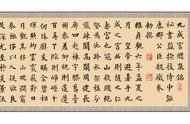 九成宮醴泉銘秘
書監檢校侍中鉅
鹿郡公臣魏徵奉
勑撰
維貞觀六年孟夏之
月皇帝避暑乎九
成之宮此則隨之仁
壽宮也冠山抗殿絕
壑為池跨水架楹分
巖竦闕高閣周建長
廊四起棟宇膠葛臺
榭參差仰視則迢遰
百尋下臨則崢嶸千
仞珠璧交映金碧相
暉照灼雲霞蔽虧日
月觀其移山迴澗窮
泰極侈以人從欲良
足深尤至於炎景流